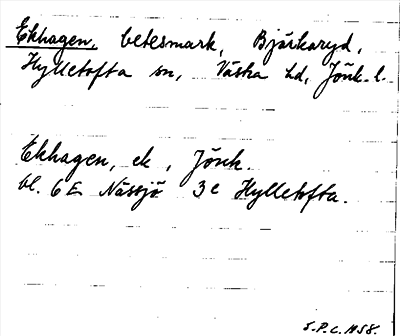 Ekhagen, betesmark, Bjärkaryd,
Hylletofta sn, Västra hd, Jönk. l.
Ekhagen, ek, Jönk.
bl. 6E Nässjö 3c Hylletofta.
S.P.C. 1958.